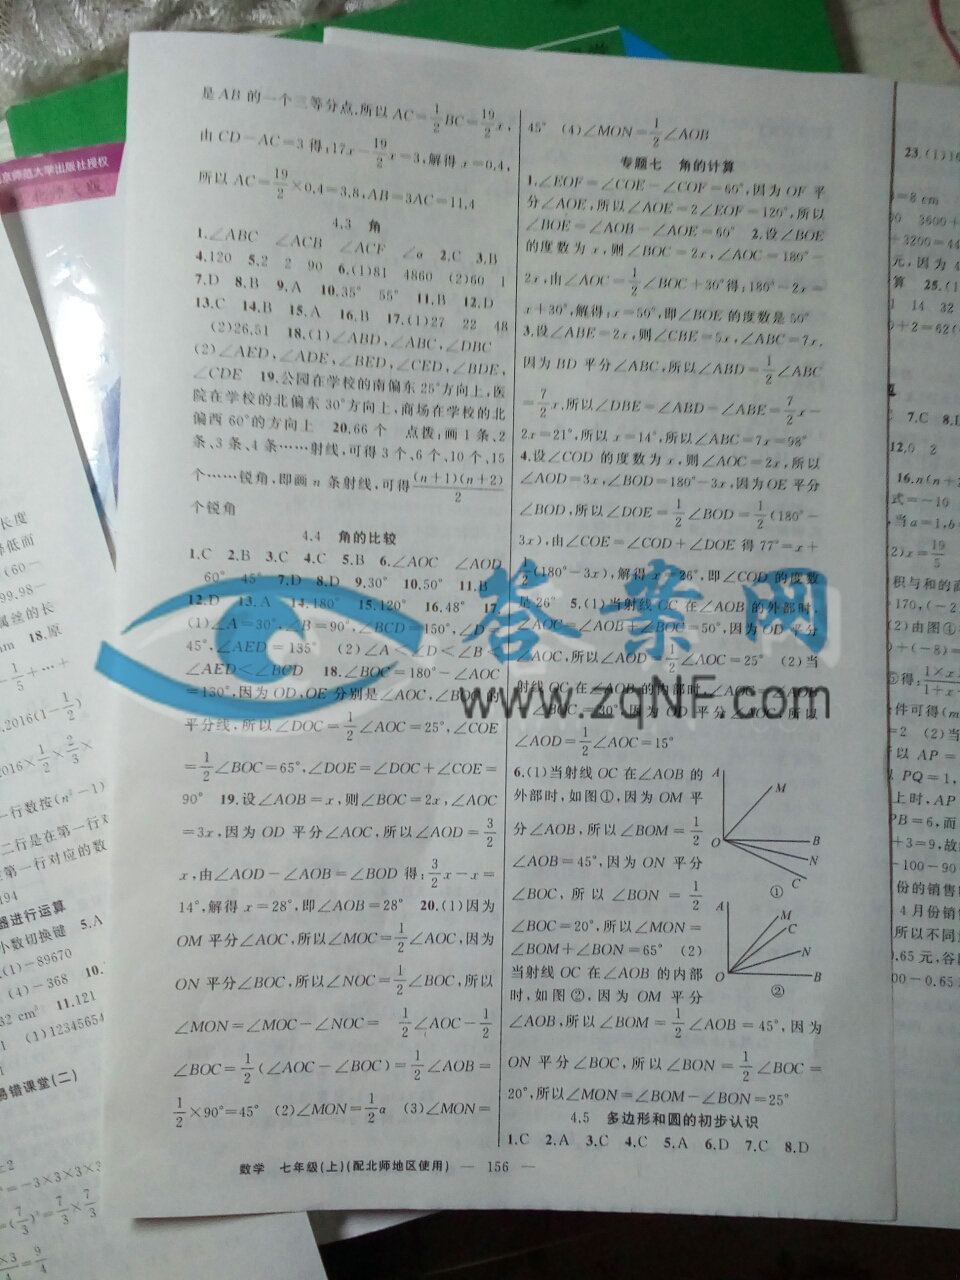 是AB的一个三等分点,所以AC=1/2BC=19/2x,
由CD-AC=3得:17x-19/2x=3,解得x=0.4,
所以AC=19/2×0.4=3.8,AB=3AC=11.4
4.3 角
1.∠ABC ∠ACB ∠ACF ∠α 2.C 3.B
4.120 5.2 2 90 6.(1)81 4860 (2)60 1
7.D 8.B 9.A 10.35° 55° 11.B 12.D
13.C 14.B 15.A 16.B 17.(1)27 22 48
(2)26.51 18.(1)∠ABD,∠ABC,∠DBC
(2)∠AED,∠ADE,∠BED,∠CED,∠BDE,
∠CDE 19.公园在学校的南偏东25°方向上,医
院在学校的北偏东30°方向上,商场在学校的北
偏西60°的方向上 20.66个 点拨:画1条、2
条、3条、4条……射线,可得3个、6个、10个、15
个……锐角,即画n条射线,可得(n+1)(n+2)/2
个锐角
4.4 角的比较
1.C 2.B 3.C 4.C 5.B 6.∠AOC ∠AOD
60° 45° 7.D 8.D 9.30° 10.50° 11.B
12.D 13.A 14.180° 15.120° 16.48° 17.
(1)∠A=30°,∠B=90°,∠BCD=150°,∠D=
45°,∠AED=135° (2)∠A<∠D<∠B<
∠AED<∠BCD 18.∠BOC=180°-∠AOC
=130°,因为OD,OE分别是∠AOC,∠BOC的
平分线,所以∠DOC=1/2∠AOC=25°,∠COE
=1/2∠BOC=65°,∠DOE=∠DOC+∠COE=
90° 19.设∠AOB=x,则∠BOC=2x,∠AOC
=3x,因为OD平分∠AOC,所以∠AOD=3/2
x,由∠AOD-∠AOB=∠BOD得:3/2x-x=
14°,解得x=28°,即∠AOB=28° 20.(1)因为
OM平分∠AOC,所以∠MOC=1/2∠AOC,因为
ON平分∠BOC,所以∠NOC=1/2∠BOC,所以
∠MON=∠MOC-∠NOC= 1/2∠AOC-1/2
∠BOC=1/2(∠AOC-∠BOC)=1/2∠AOB=
1/2×90°=45° (2)∠MON=1/2α (3)∠MON=
45° (4)∠MON=1/2∠AOB
专题七 角的计算
1.∠EOF=∠COE-∠COF=60°,因为OF平
分∠AOE,所以∠AOE=2∠EOF=120°,所以
∠BOE=∠AOB-∠AOE=60° 2.设∠BOE
的度数为x,则∠BOC=2x,∠AOC=180°-
2x,由∠AOC=1/2∠BOC+30°得:180°-2x=
x+30°,解得:x=50°,即∠BOE的度数是50°
3.设∠ABE=2x,则∠CBE=5x,∠ABC=7x,
因为BD平分∠ABC,所以∠ABD=1/2∠ABC
=7/2x,所以∠DBE=∠ABD-∠ABE=7/2x-
2x=21°,所以x=14°,所以∠ABC=7x=98°
4.设∠COD的度数为x,则∠AOC=2x,所以
∠AOD=3x,∠BOD=180°-3x,因为OE平分
∠BOD,所以∠DOE=1/2∠BOD=1/2(180°-
3x),由∠COE=∠COD+∠DOE得77°=x+
1/2(180°-3x),解得x=26°,即∠COD的度数
是26° 5.(1)当射线OC在∠AOB的外部时,
∠AOC=∠AOB+∠BOC=50°,因为OD平分
∠AOC,所以∠AOD=1/2∠AOC=25° (2)当
射线OC在∠AOB的内部时,∠AOC=∠AOB-
∠BOC=30°,因为OD平分∠AOC,所以
∠AOD=1/2∠AOC=15°
6.(1)当射线OC在∠AOB的
外部时,如图①,因为OM平
分∠AOB,所以∠BOM=1/2
∠AOB=45°,因为ON平分
∠BOC,所以∠BON=1/2
∠BOC=20°,所以∠MON=
∠BOM+∠BON=65° (2)
当射线OC在∠AOB的内部
时,如图②,因为OM平分
∠AOB,所以∠BOM=1/2∠AOB=45°,因为
ON平分∠BOC,所以∠BON=1/2∠BOC=
20°,所以∠MON=∠BOM-∠BON=25°
A
M
O
B
N
C
①
A
M
C
N
O
B
②
4.5 多边形和圆的初步认识
1.C 2.A 3.C 4.C 5.A 6.D 7.C 8.D
数学 七年级(上)(配北师地区使用) — 156 —
答案网
www.zqNF.com
京师范大学出版社授权